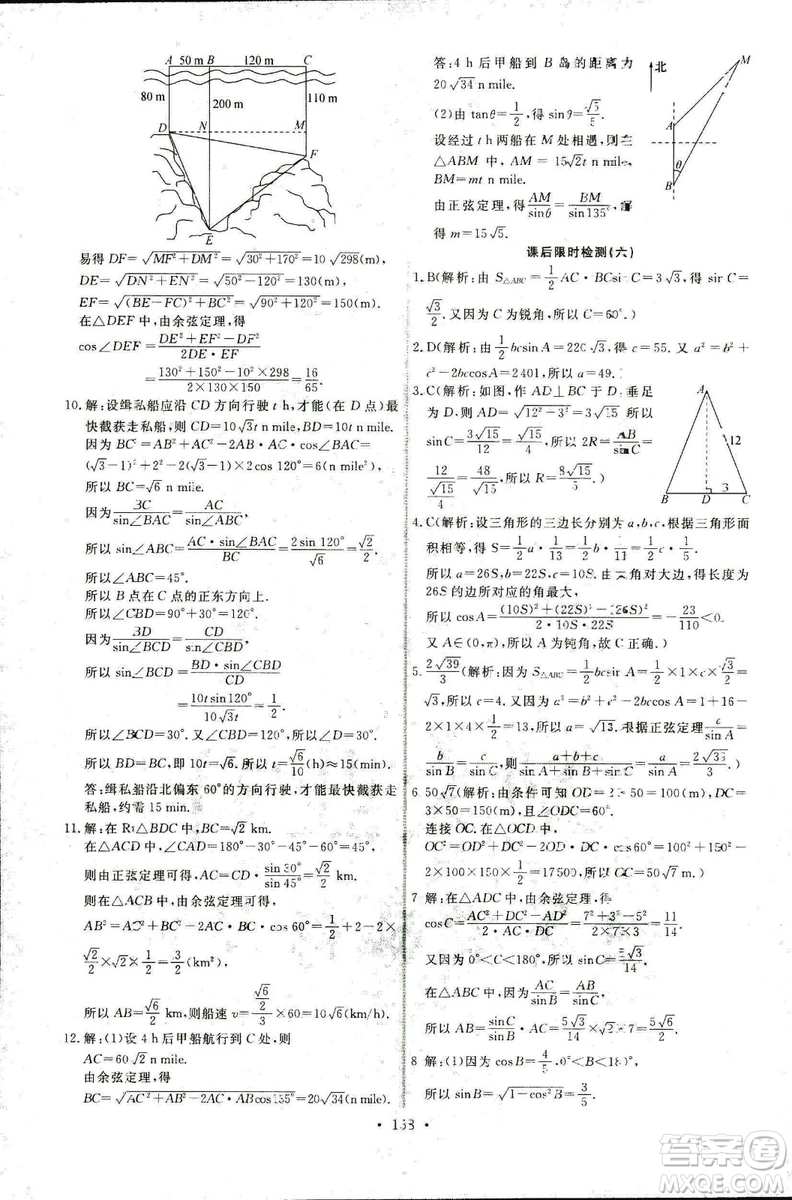 A 50 m B 120 m C
80 m 200 m 110 m
D N M
F
E
易得 DF=√(MF²+DM²)=√(30²+170²)=10√298(m),
DE=√(DN²+EN²)=√(50²+120²)=130(m),
EF=√((BE-FC)²+BC²)=√(90²+120²)=150(m).
在△DEF 中,由余弦定理,得
cos∠DEF=(DE²+EF²-DF²)/(2DE·EF)
=(130²+150²-10²×298)/(2×130×150)=16/65.
10. 解:设缉私船应沿 CD 方向行驶 t h,才能(在 D 点)最
快截获走私船,则 CD=10√3t n mile,BD=10t n mile.
因为 BC²=AB²+AC²-2AB·AC·cos∠BAC=
(√3-1)²+2²-2(√3-1)×2×cos 120°=6(n mile),
所以 BC=√6 n mile.
因为 BC/sin∠BAC=AC/sin∠ABC,
所以 sin∠ABC=AC·sin∠BAC/BC=2sin 120°/√6=√2/2.
所以∠ABC=45°.
所以 B 点在 C 点的正东方向上.
所以∠CBD=90°+30°=120°.
因为 BD/sin∠BCD=CD/sin∠CBD,
所以 sin∠BCD=BD·sin∠CBD/CD
=10tsin120°/10√3t=1/2.
所以∠BCD=30°,所以∠BDC=30°.
所以 BD=BC,即 10t=√6.所以 t=√6/10(h)≈15(min).
答:缉私船沿北偏东 60°的方向行驶,才能最快截获走
私船,约需 15 min.
11. 解:在 Rt△BDC 中,BC=√2 km.
在△ACD 中,∠CAD=180°-30°-45°-60°=45°,
则由正弦定理可得 AC=CD·sin 30°/sin 45°=√2/2(km).
在△ACB 中,由余弦定理,得
AB²=AC²+BC²-2AC·BC·cos 60°=1/2+2-2×
√2/2×√2×1/2=3/2(km²),
所以 AB=√6/2 km,则船速 v=√6/2×60/10=3√6(km/h).
12. 解:(1)设 4 h 后甲船航行到 C 处,则
AC=60√2 n mile.
由余弦定理,得
BC=√(AC²+AB²-2AC·ABcos135°)=20√34(n mile).
答:4 h 后甲船到 B 岛的距离为
20√34 n mile.
(2)由 tanθ=1/2,得 sinθ=√5/5.
设经过 t h 两船在 M 处相遇,则在
△ABM 中,AM=15√2t n mile,
BM=mt n mile.
由正弦定理,得 AM/sinθ=BM/sin135°,
求得 m=15√5.
北
M
A
θ
B
课后限时检测(六)
1. B(解析:由 S△ABC=1/2AC·BCsin C=3√3,得 sin C=
√3/2.又因为 C 为锐角,所以 C=60°.)
2. D(解析:由1/2bcsin A=220√3,得 c=55.又 a²=b²+
c²-2bccos A=2401,所以 a=49.)
3. C(解析:如图,作 AD⊥BC 于 D 垂足
为 D,则 AD=√(12²-3²)=3√15,所以
sinC=3√15/12=√15/4,所以 2R=AB/sinC=
12/(√15/4)=48/√15,所以 R=8√15/5.)
A
12
3
B D C
4. C(解析:设三角形的三边长分别为 a,b,c,根据三角形
面积相等,得 S=1/2a×1/13=1/2b·1/11=1/2c·1/5.
所以 a=26S,b=22S,c=10S.由大角对大边,得
26S 的边所对应的角最大,
所以 cosA=((10S)²+(22S)²-(26S)²)/(2·10S·22S)=-23/110<0.
又 A∈(0,π)为钝角,故 C 正确.)
5. 2√39/3(解析:因为 S△ABC=1/2bcsin A=1/2×1×c×√3/2=
√3,所以 c=4.又因为 a²=b²+c²-2bccos A=1+16-
2×1×4×1/2=13,所以 a=√13.根据正弦定理a/sin A=
b/sin B=c/sin C,所以(a+b+c)/(sin A+sin B+sin C)=a/sin A=2√39/3.)
6 50√7(解析:由条件可知 OD=2×50=100(m),DC=
3×50=150(m),且∠ODC=60°.
连接 OC.在△OCD 中,
OC²=OD²+DC²-2OD·DC·cos∠ODC=100²+150²-
2×100×150×1/2=17500,所以 OC=50√7 m.)
7 解:在△ADC 中,由余弦定理,得
cosC=(AC²+DC²-AD²)/(2·AC·DC)=(7²+3²-5²)/(2×7×3)=11/14
又因为 0°<C<180°,所以 sinC=5√3/14.
在△ABC 中,因为 AC/sin B=AB/sin C,
所以 AB=sinC/sinB·AC=5√3/14×√2×7=5√6/2.
8 解:(1)因为 cosB=4/5,
所以 sinB=√(1-cos²B)=3/5.
· 158 ·
答案圈
MXQE.COM